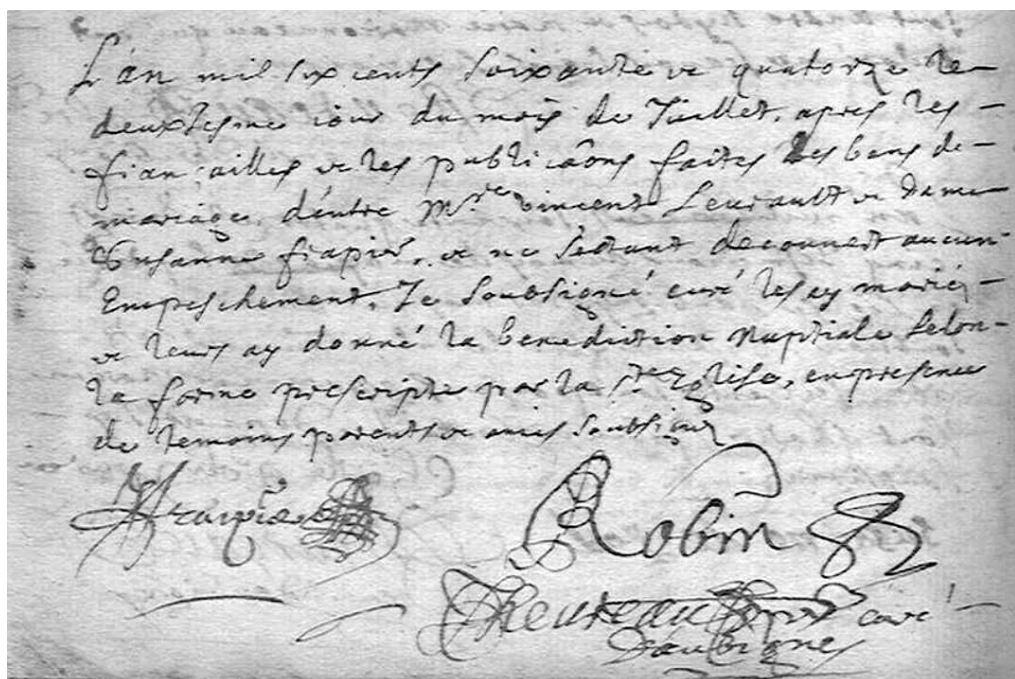 L'an mil six cents soixante et quatorze le
deuxiesme iour du mois de Juillet, apres les
fiançailles et les publicaõns faites des bans de
mariage d'entre Mre Vincent Leurault et dame
Susanne frapier, et ne s'estant decouvert aucun
Empeschement, Je soubsigné curé les ay mariés
et leurs ay donné la benediction nuptiale selon
la forme prescripte par la Ste Eglise, en presence
de temoins parents et amis soubsignés
Robin
Theureau curé
d'aubigné